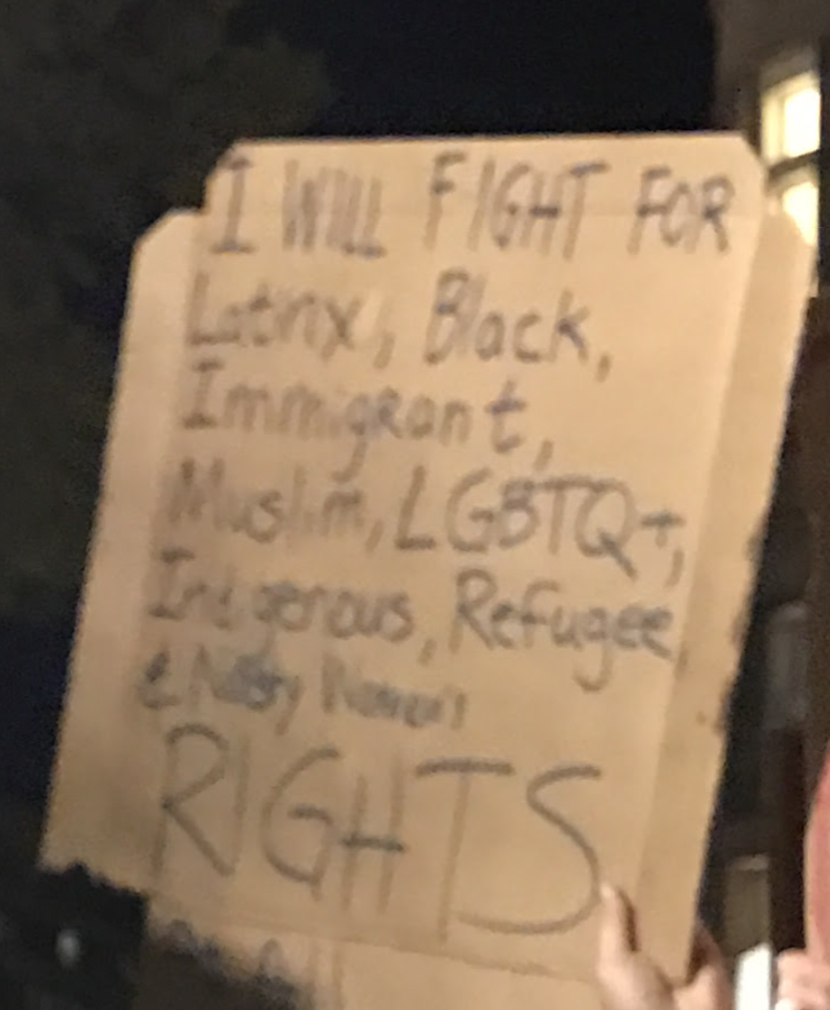 I WILL FIGHT FOR
Latinx, Black,
Immigrant,
Muslim, LGBTQ+,
Indigenous, Refugee,
& Nasty Women's
RIGHTS